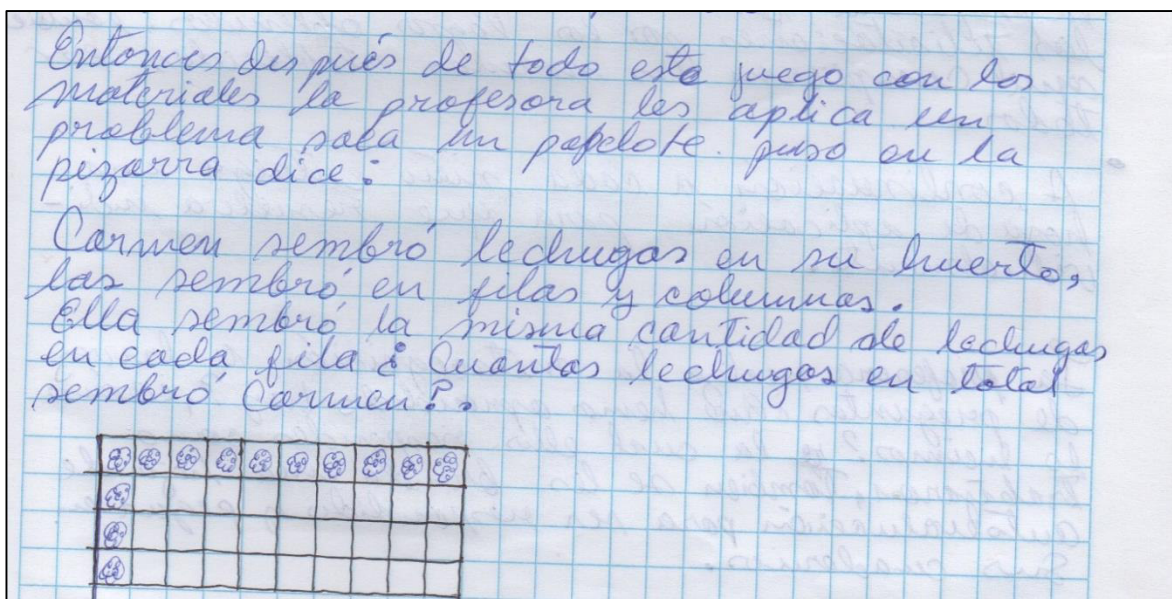 Entonces después de todo este juego con los
materiales la profesora les aplica un
problema saca un papelote. puso en la
pizarra dice:
Carmen sembró lechugas en su huerto,
las sembró en filas y columnas.
Ella sembró la misma cantidad de lechugas
en cada fila ¿Cuántas lechugas en total
sembró Carmen?.